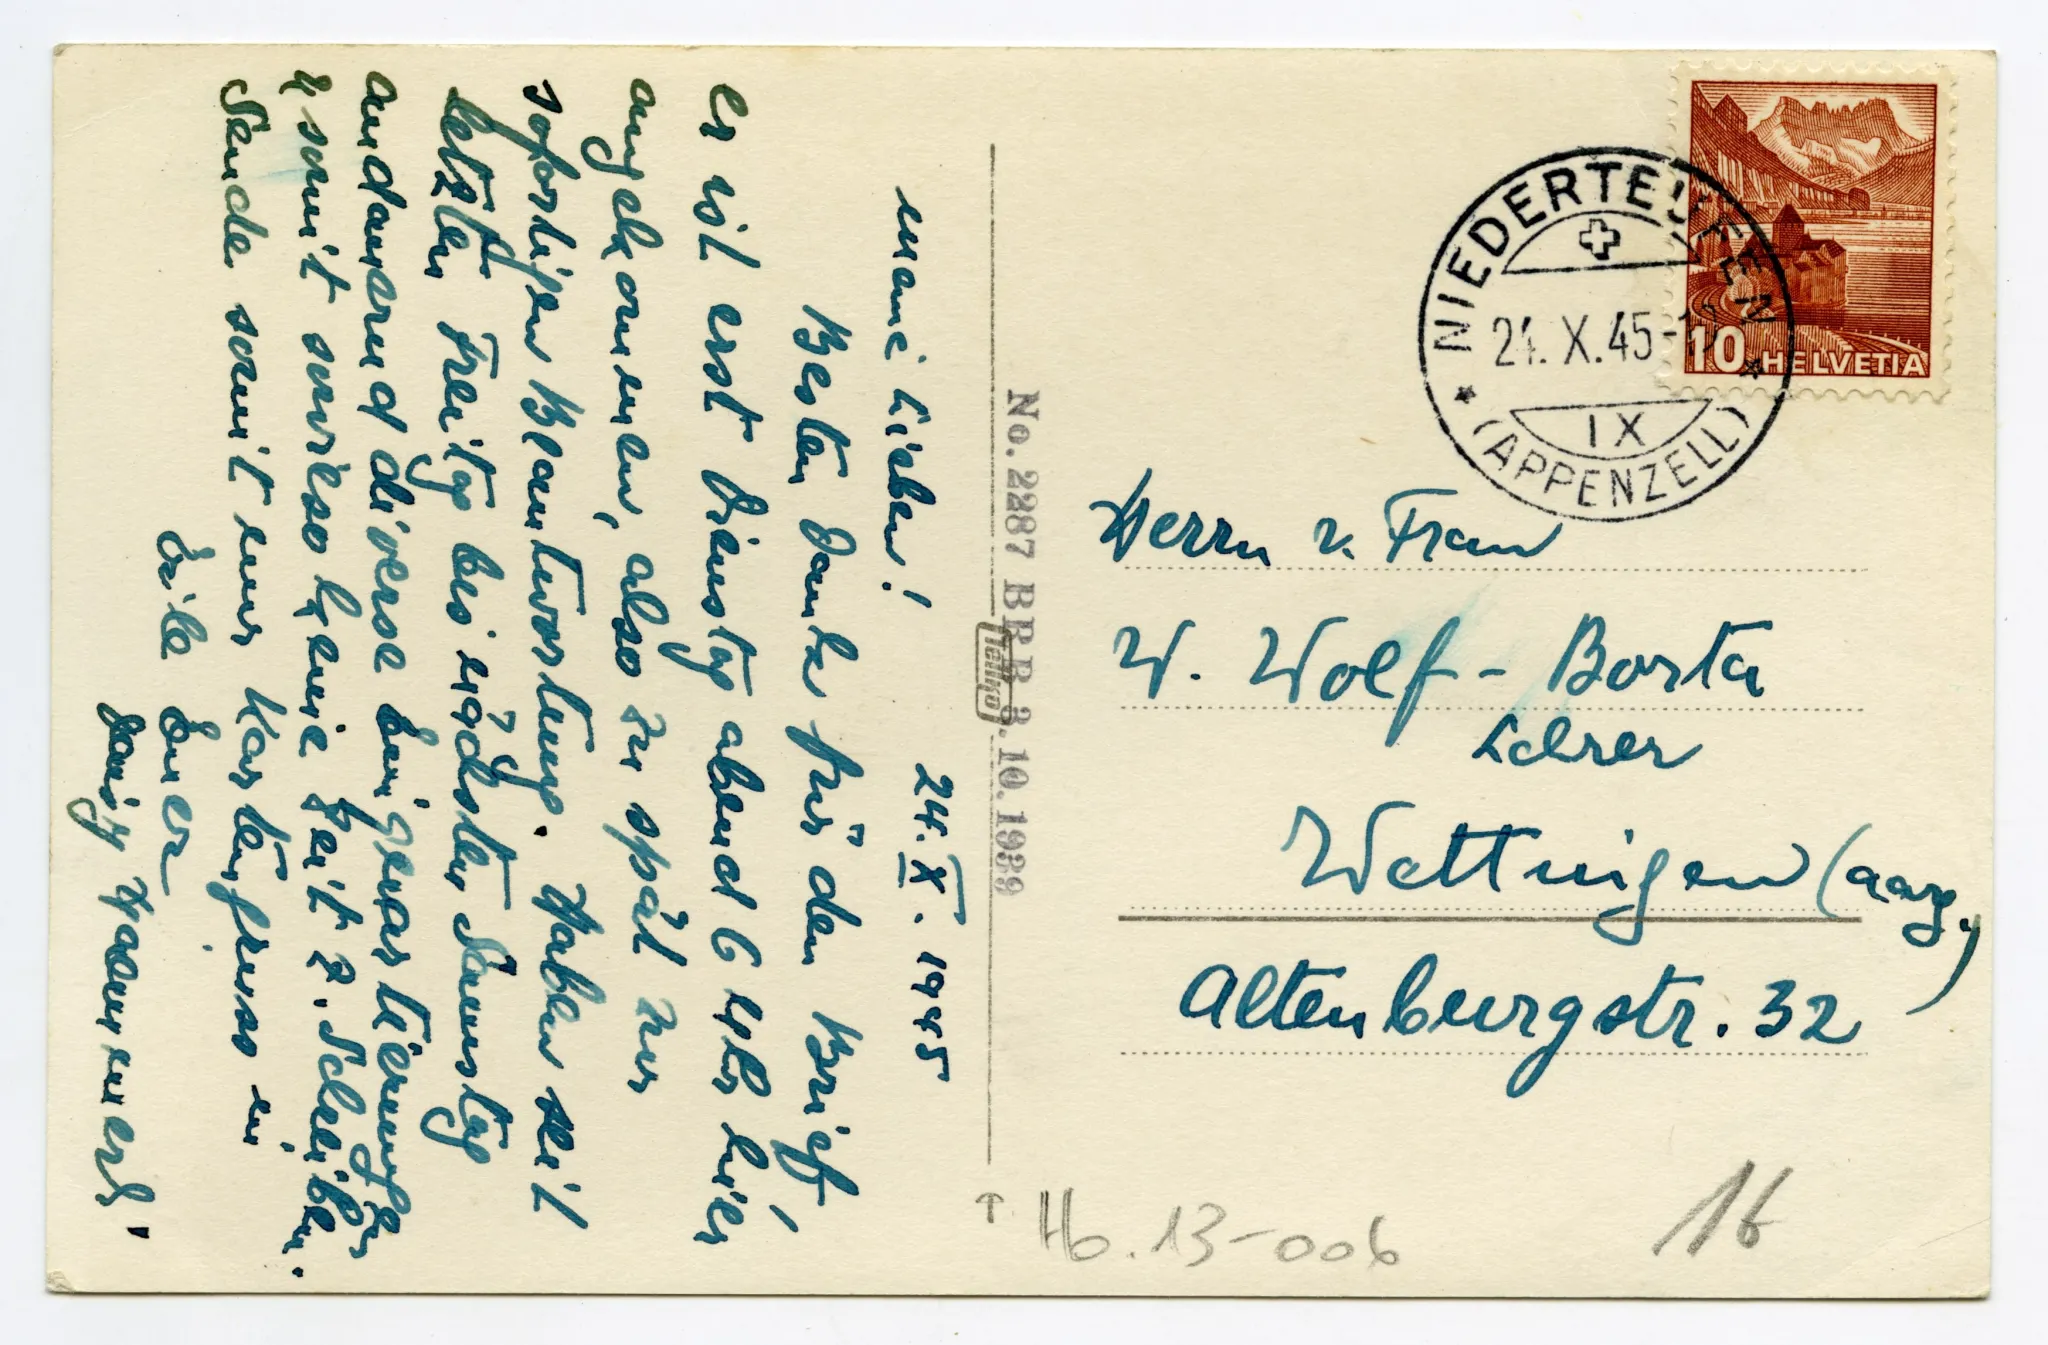 24. X. 1945
Meine Lieben!
Besten Dank für den Brief,
er ist erst Dienstag abend 6 Uhr hier
angekommen, also zu spät zur
sofortigen Beantwortung. Haben seit
letzten Freitag bis nächsten Samstag
andauernd diverse Einquartierungen
& somit sowieso keine Zeit z. Schreiben.
Sende somit nur Kartengruss in
Eile Euer
No. 2287 BRB 3.10.1939
NIEDERTEUFEN
24. X. 45
IX
(APPENZELL)
10 HELVETIA
Herrn u. Frau
W. Wolf-Borta
Lehrer
Wettingen (Aarg.)
Altenburgstr. 32
Hb. 13-006
16